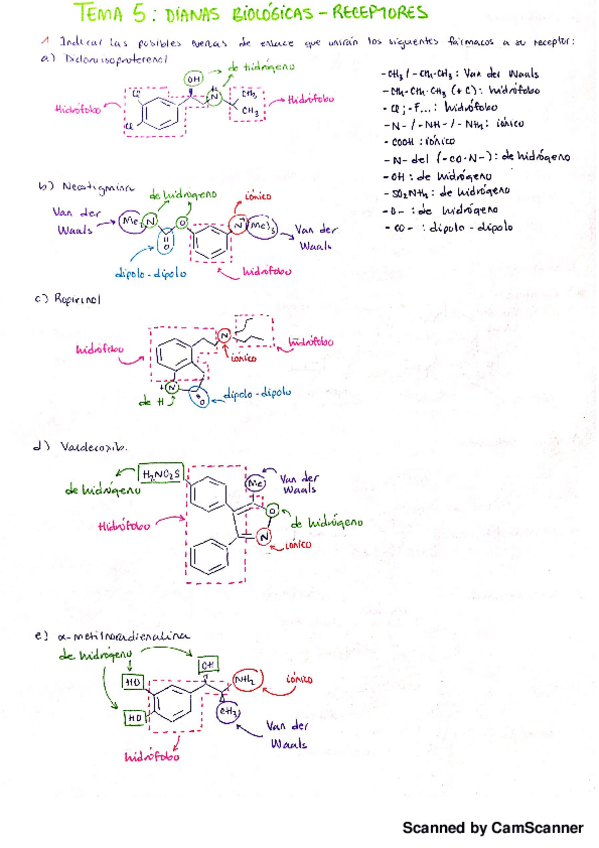 TEMA 5: DIANAS BIOLÓGICAS - RECEPTORES
1 Indicar las posibles fuerzas de enlace que unirán los siguientes fármacos a su receptor:
a) Dicloroisoproterenol
de hidrógeno
OH
H
N
CH3
CH3
Cl
Cl
Hidrófobo
Hidrófobo
-CH3 / -CH2-CH3: Van der Waals
-CH2-CH2-CH3 (+C): hidrófobo
-Cl; -F...: hidrófobo
-N- / -NH- / -NH2: iónico
-COOH: iónico
-N- del (-CO-N-): de hidrógeno
-OH: de hidrógeno
-SO2NH2: de hidrógeno
-O-: de hidrógeno
-CO-: dipolo-dipolo
b) Neostigmina
de hidrógeno
iónico
Van der Waals
Me2
N
O
O
N+
Me)3
Van der Waals
dipolo-dipolo
hidrófobo
c) Ropirinol
hidrófobo
N
iónico
hidrófobo
H
N
O
de H
dipolo-dipolo
d) Valdecoxib.
H2NO2S
de hidrógeno
Me
Van der Waals
O
de hidrógeno
Hidrófobo
N
iónico
e) α-metilnoradrenalina
de hidrógeno
OH
HO
NH2
iónico
HO
CH3
Van der Waals
hidrófobo
Scanned by CamScanner